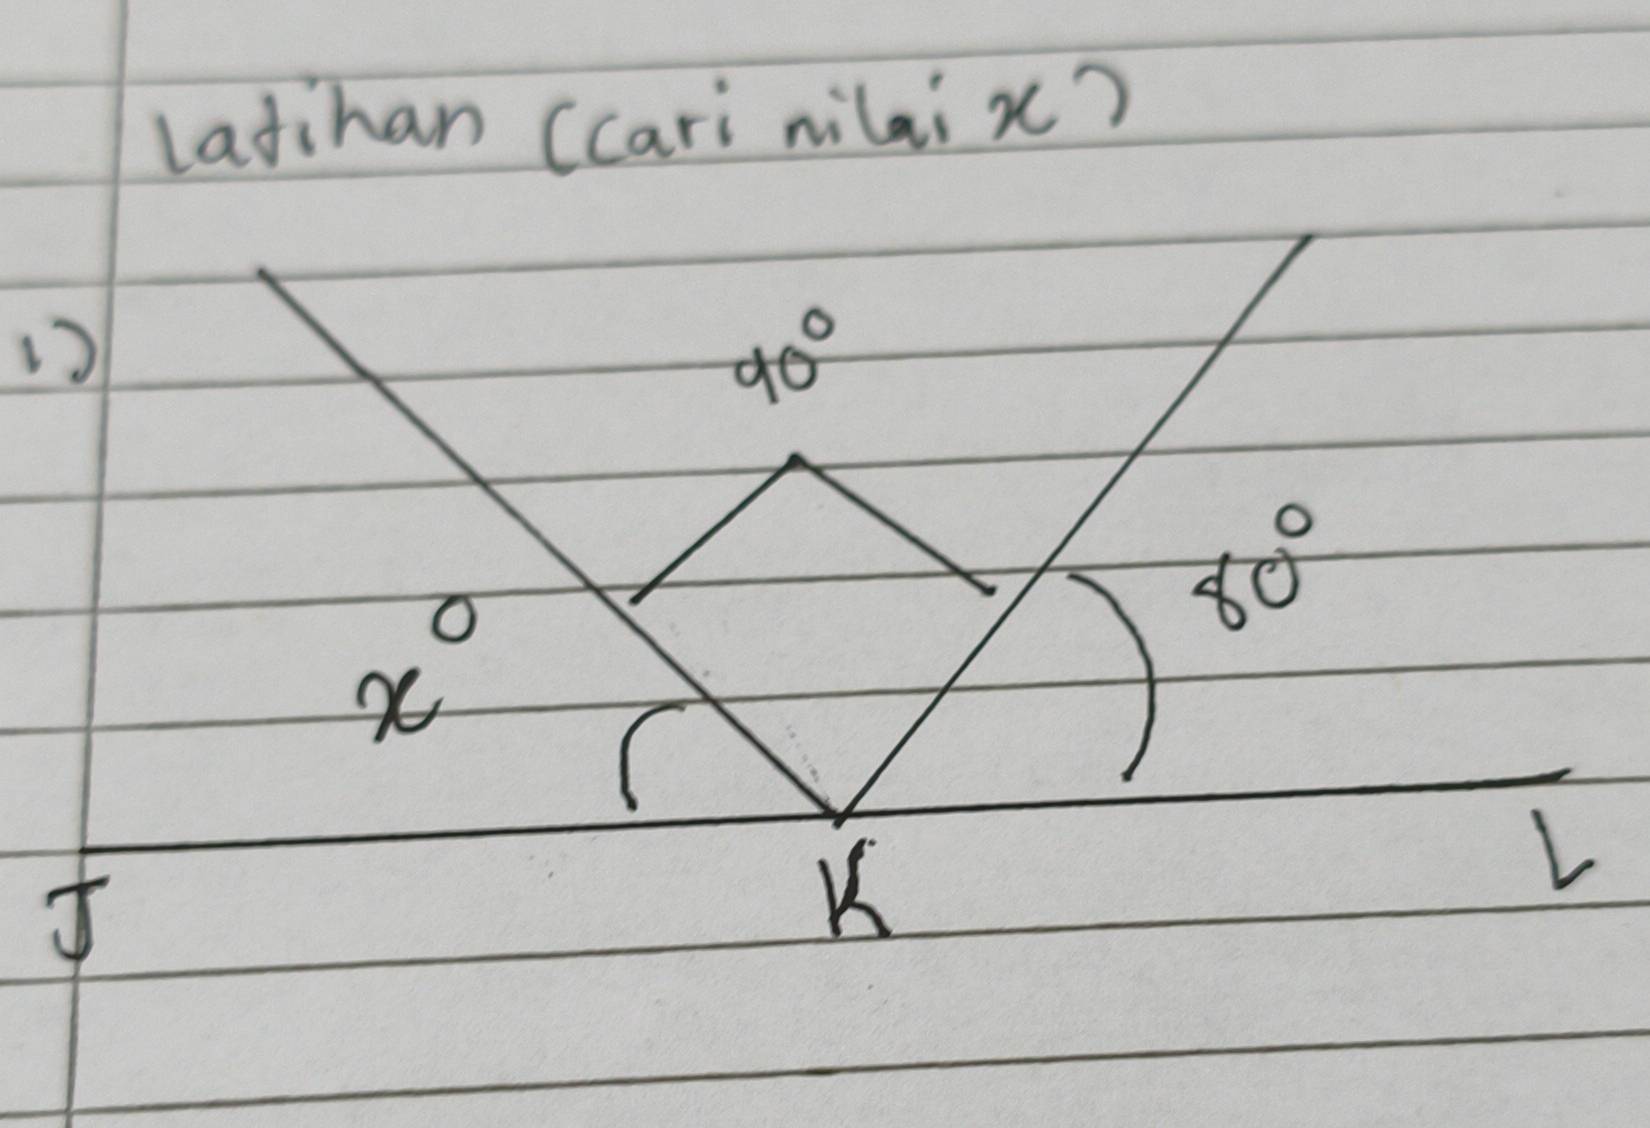 Latihan (Cari nilai x)
1)
90°
80°
x°
J
K
L